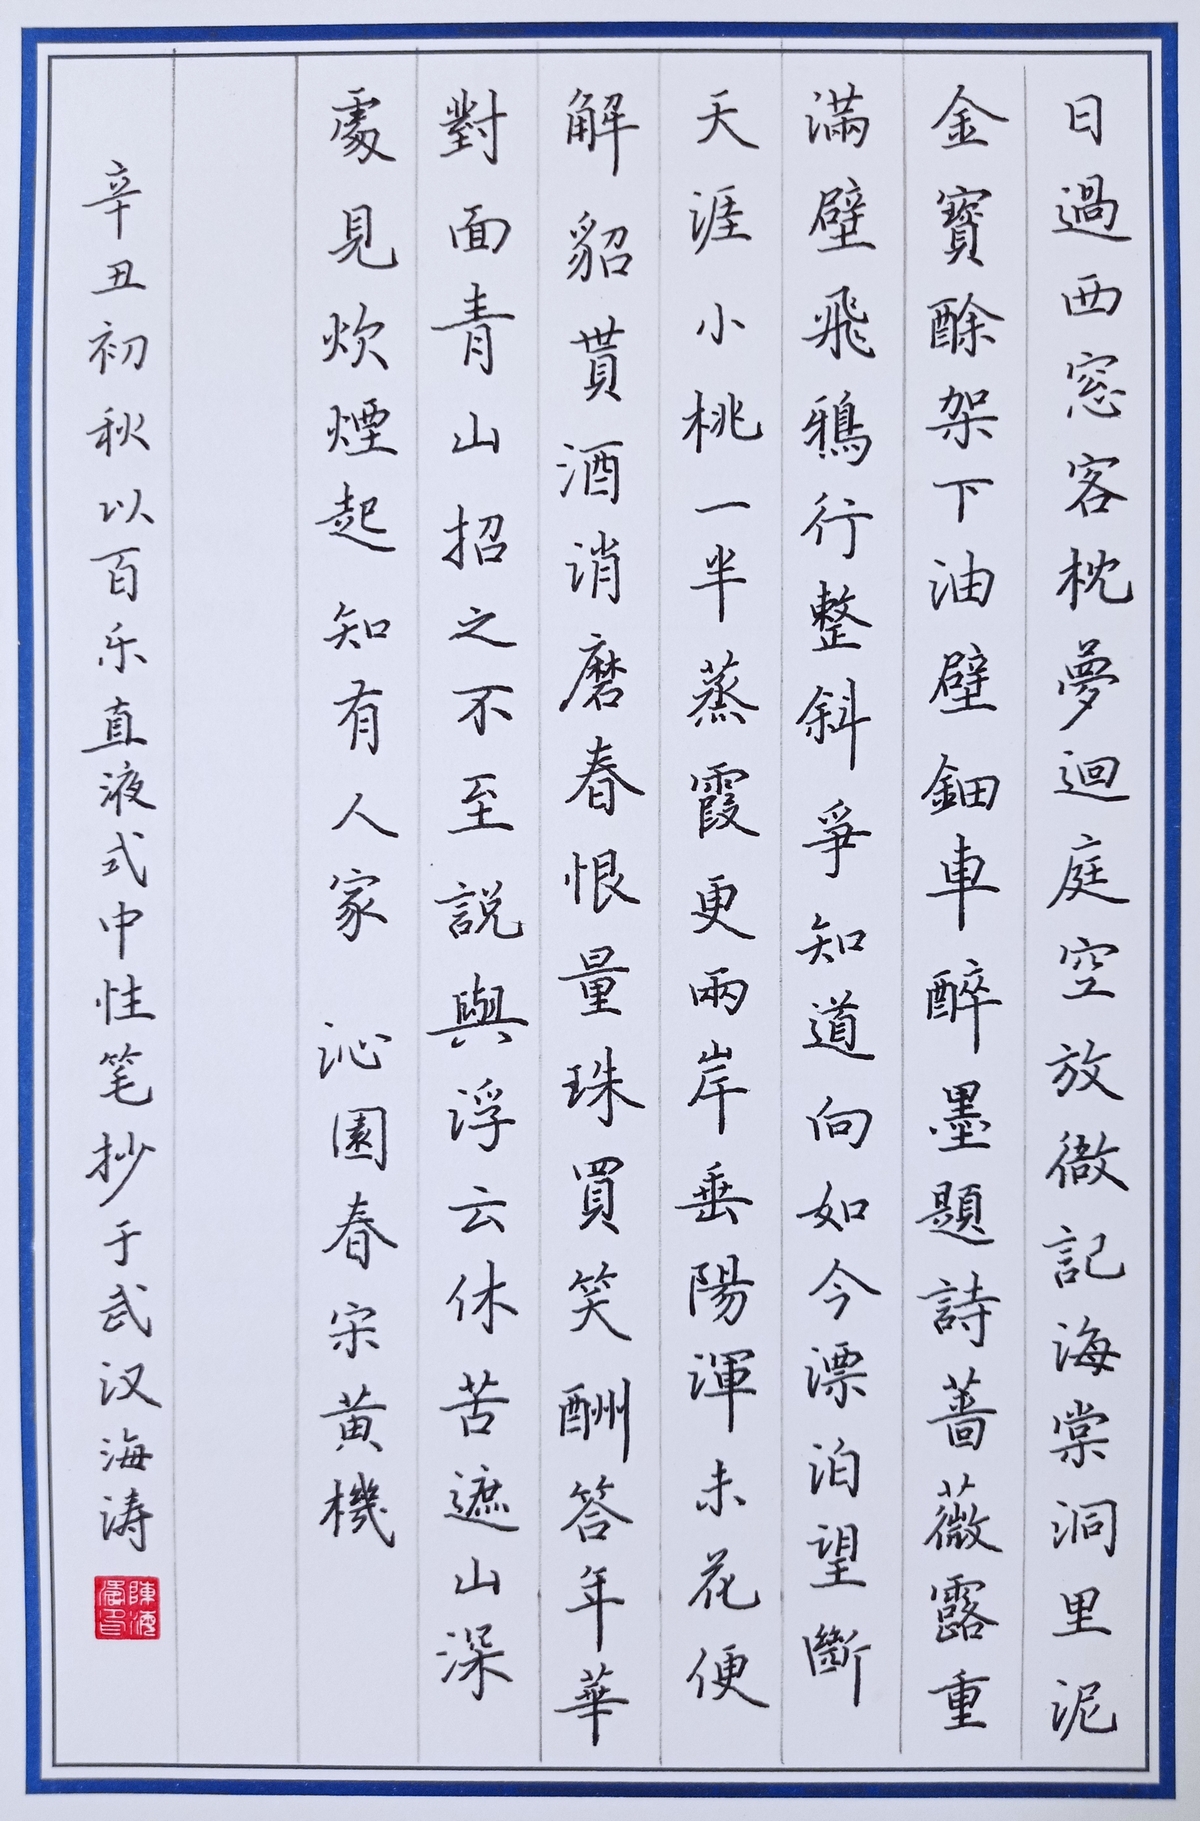 日過西窓客枕夢迴庭空放衙記海棠洞里泥
金寳酴架下油壁鈿車醉墨題詩薔薇露重
滿壁飛鴉行整斜爭知道向如今漂泊望斷
天涯小桃一半蒸霞更兩岸垂陽渾未花便
解貂貰酒消磨春恨量珠買笑酬答年華
對面青山招之不至説與浮云休苦遮山深
處見炊煙起知有人家 沁園春宋黄機
辛丑初秋以百乐直液式中性笔抄于武汉海涛